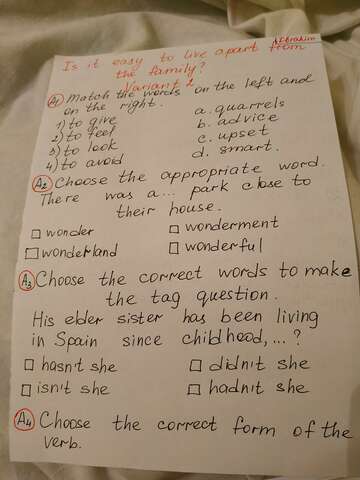 Ibrahim
Is it easy to live apart from
the family?
Variant 2
A1 Match the words on the left and
on the right.
1) to give a. quarrels
2) to feel b. advice
3) to look c. upset
4) to avoid d. smart.
A2 Choose the appropriate word.
There was a... park close to
their house.
wonder wonderment
wonderland wonderful
A3 Choose the correct words to make
the tag question.
His elder sister has been living
in Spain since childhood,...?
hasn't she didn't she
isn't she hadn't she
A4 Choose the correct form of the
verb.